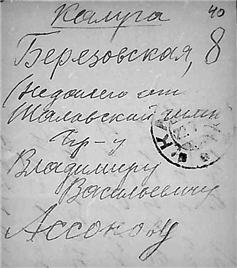 40
Калуга
Березовская, 8
(недалеко от
гр-у
Владимиру
Васильевичу
Ассонову